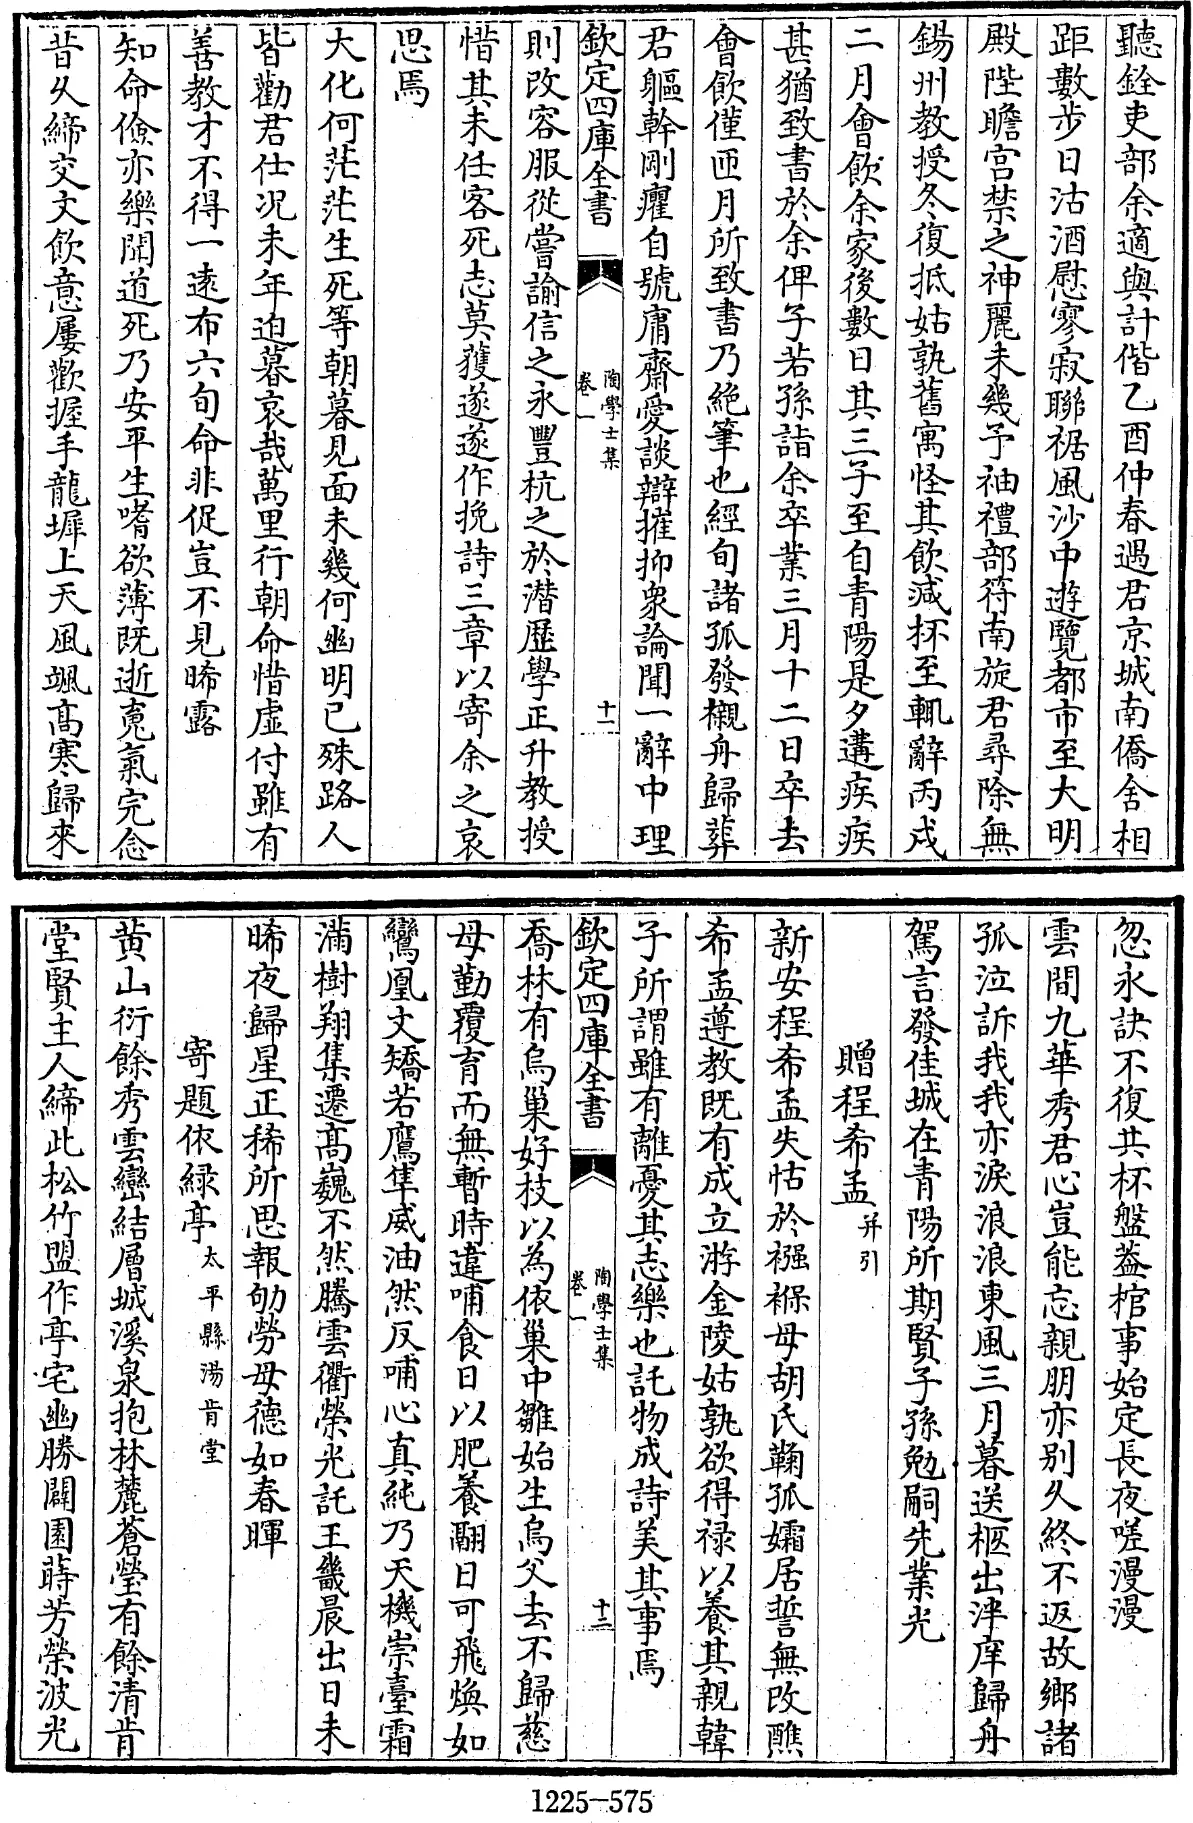 聽銓吏部余適與計偕乙酉仲春遇君京城南僑舍相
距數步日沽酒慰寥寂聯裾風沙中遊覽都市至大明
殿陛瞻宫禁之神麗未幾予袖禮部符南旋君尋除無
錫州教授冬復抵姑孰舊寓怪其飲減抔至輒辭丙戌
二月會飲余家後數日其三子至自青陽是夕遘疾疾
甚猶致書於余俾子若孫詣余卒業三月十二日卒去
會飲僅匝月所致書乃絶筆也經旬諸孤發櫬舟歸葬
君軀幹剛癯自號庸齋愛談辯摧抑衆論聞一辭中理
欽定四庫全書
陶學士集
卷一
十一
則改容服從嘗諭信之永豐杭之於潛歴學正升教授
惜其未任客死志莫獲遂遂作挽詩三章以寄余之哀
思焉
大化何茫茫生死等朝暮見面未幾何幽明已殊路人
皆勸君仕况未年迫暮哀哉萬里行朝命惜虚付雖有
善教才不得一逺布六旬命非促豈不見晞露
知命儉亦樂聞道死乃安平生嗜欲薄既逝䰟氣完念
昔乆締交文飲意屢歡握手龍墀上天風颯髙寒歸來
忽永訣不復共杯盤葢棺事始定長夜嗟漫漫
雲間九華秀君心豈能忘親朋亦别乆終不返故鄉諸
孤泣訴我我亦淚浪浪東風三月暮送柩出泮庠歸舟
駕言發佳城在青陽所期賢子孫勉嗣先業光
贈程希孟并引
新安程希孟失怙於襁褓母胡氏鞠孤孀居誓無改醮
希孟遵教既有成立游金陵姑孰欲得禄以養其親韓
子所謂雖有離憂其志樂也託物成詩美其事焉
欽定四庫全書
陶學士集
卷一
十二
喬林有烏巢好技以為依巢中雛始生烏父去不歸慈
母勤覆育而無暫時違哺食日以肥養翮日可飛煥如
鸞凰文矯若鷹隼威油然反哺心真純乃天機崇臺霜
滿樹翔集遷髙巍不然騰雲衢榮光託王畿晨出日未
晞夜歸星正稀所思報劬勞母德如春暉
寄題依緑亭太平縣湯肯堂
黄山衍餘秀雲巒結層城溪泉抱林麓蒼瑩有餘清肯
堂賢主人締此松竹盟作亭宅幽勝闢園蒔芳榮波光
1225-575